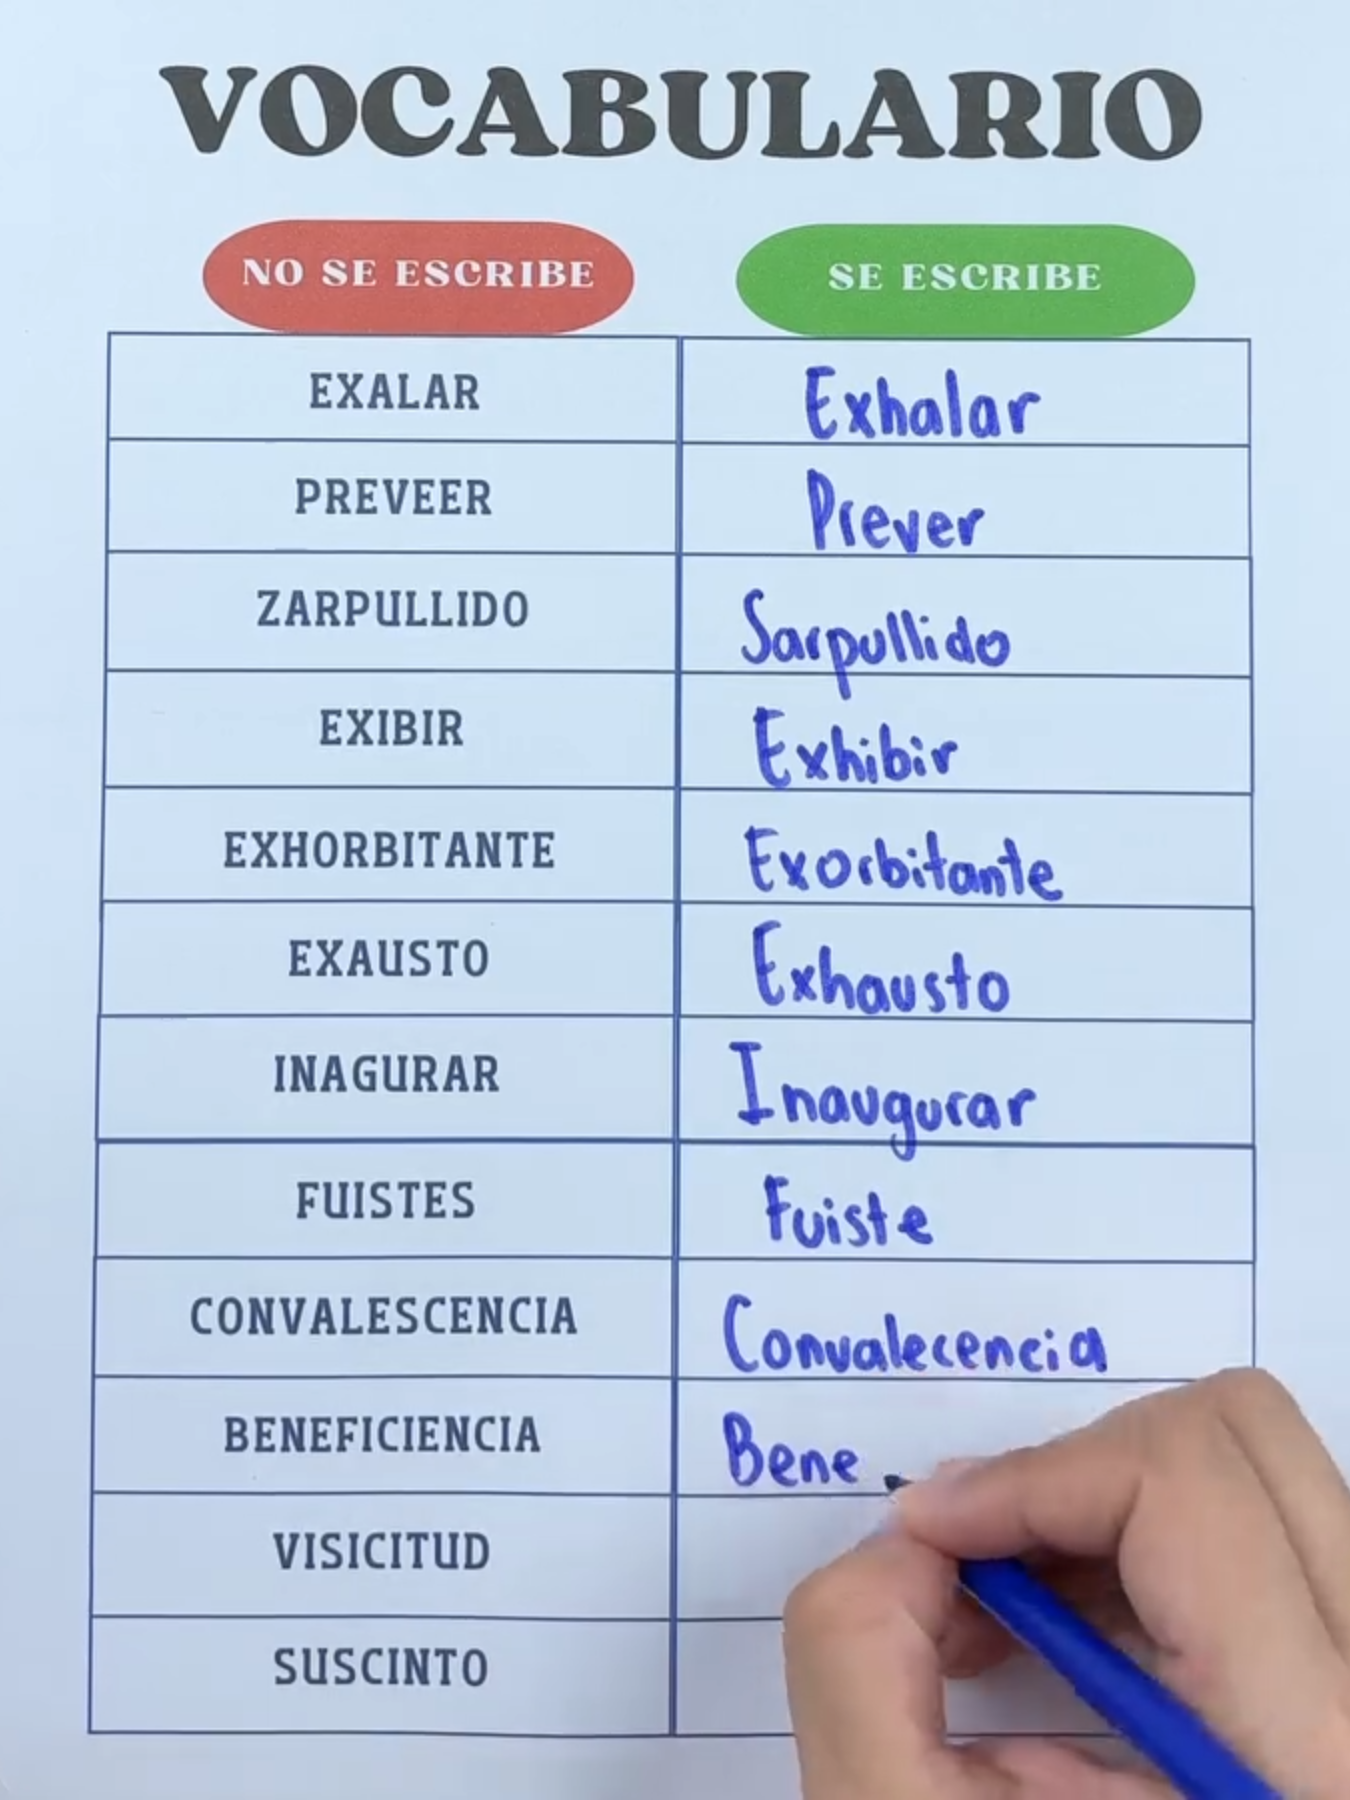 VOCABULARIO
NO SE ESCRIBE SE ESCRIBE
EXALAR Exhalar
PREVEER Prever
ZARPULLIDO Sarpullido
EXIBIR Exhibir
EXHORBITANTE Exorbitante
EXAUSTO Exhausto
INAGURAR Inaugurar
FUISTES Fuiste
CONVALESCENCIA Convalecencia
BENEFICIENCIA Bene
VISICITUD
SUSCINTO